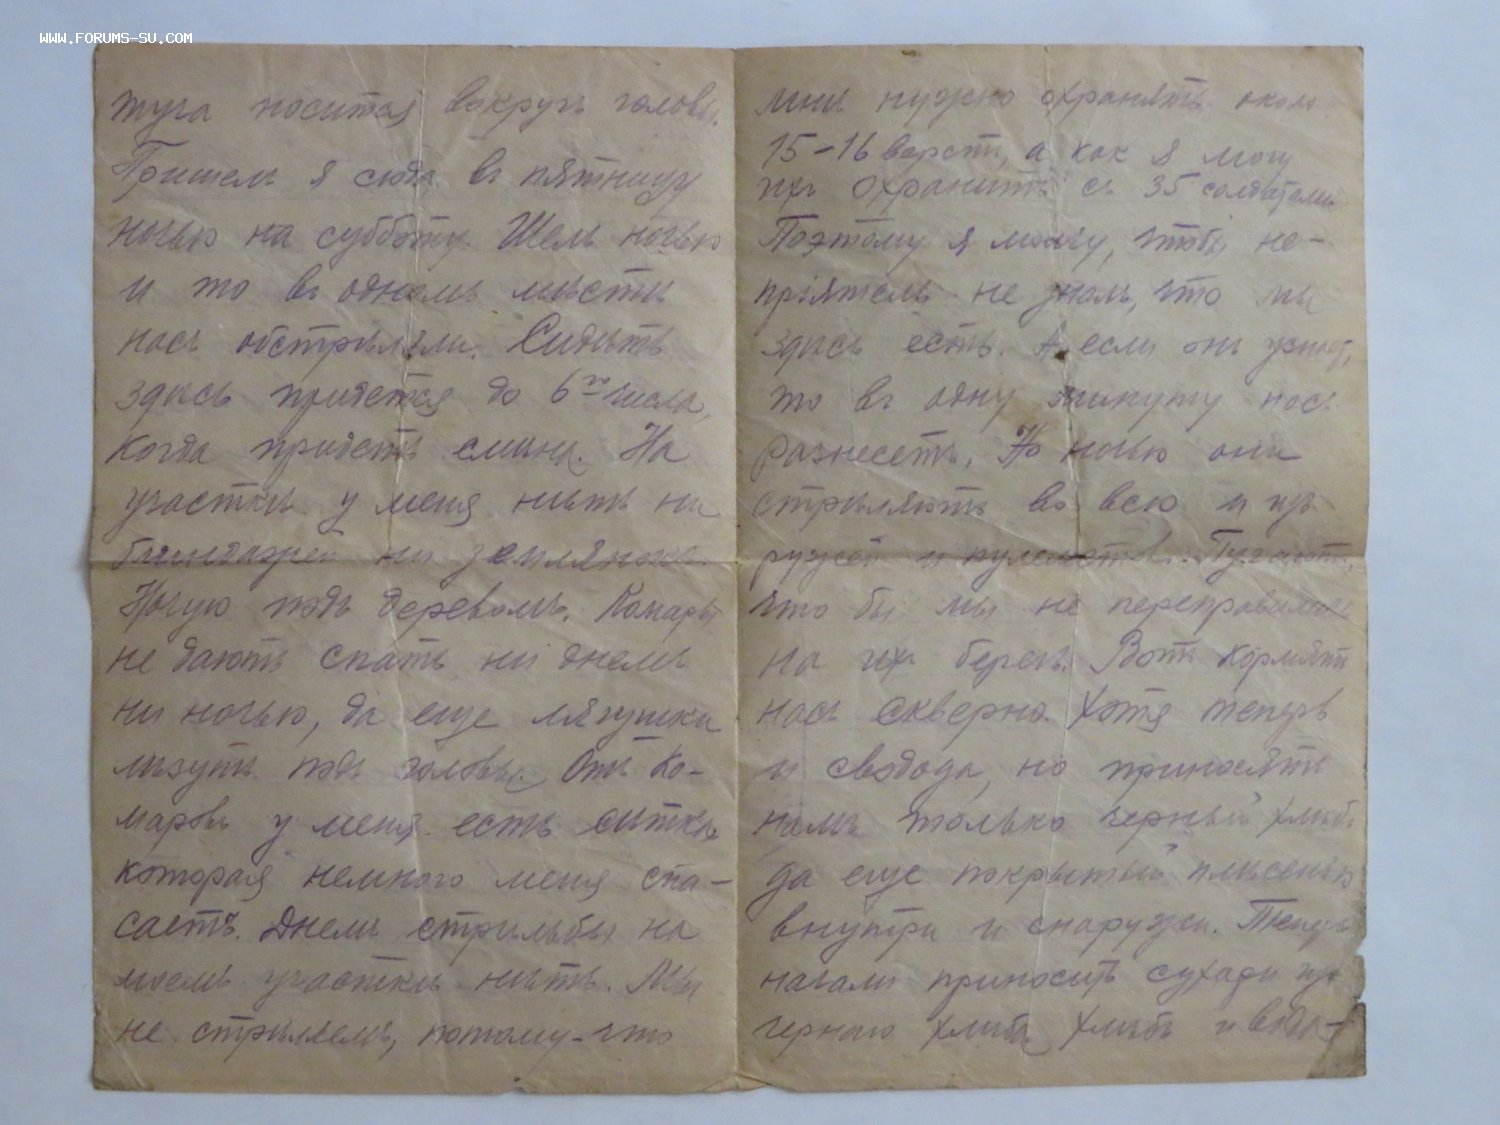 WWW.FORUMS-SU.COM
туча носится вокругъ головы.
Пришелъ я сюда въ пятницу
ночью на субботу. Шелъ ночью
и то въ одномъ мѣстѣ
насъ обстрѣляли. Сидѣть
здѣсь придется до 6го числа,
когда придетъ смѣна. На
участкѣ у меня нѣтъ ни
блиндажей ни землянокъ.
Ночую подъ деревомъ. Комары
не даютъ спать ни днемъ
ни ночью, да еще лягушки
лѣзутъ подъ голову. Отъ ко-
маровъ у меня есть сѣтка,
которая немного меня спа-
саетъ. Днемъ стрѣльбы на
моемъ участкѣ нѣтъ. Мы
не стрѣляемъ, потому-что
мнѣ нужно охранять около
15-16 верстъ, а как я могу
ихъ охранить съ 35 солдатами.
Поэтому я молчу, чтобы не-
пріятель не зналъ, что мы
здѣсь есть. А если онъ узнает,
то въ одну минуту насъ
разнесетъ. Но ночью они
стрѣляютъ во всю и изъ
ружей и пулеметовъ. Пугаютъ,
что бы мы не переправились
на ихъ берегъ. Вотъ кормятъ
насъ скверно. Хотя теперь
и свобода, но приносятъ
намъ только черный хлѣбъ
да еще покрытый плѣсенью
внутри и снаружи. Теперь
начали приносить сухари изъ
чернаго хлѣба. Хлѣбъ и вода-